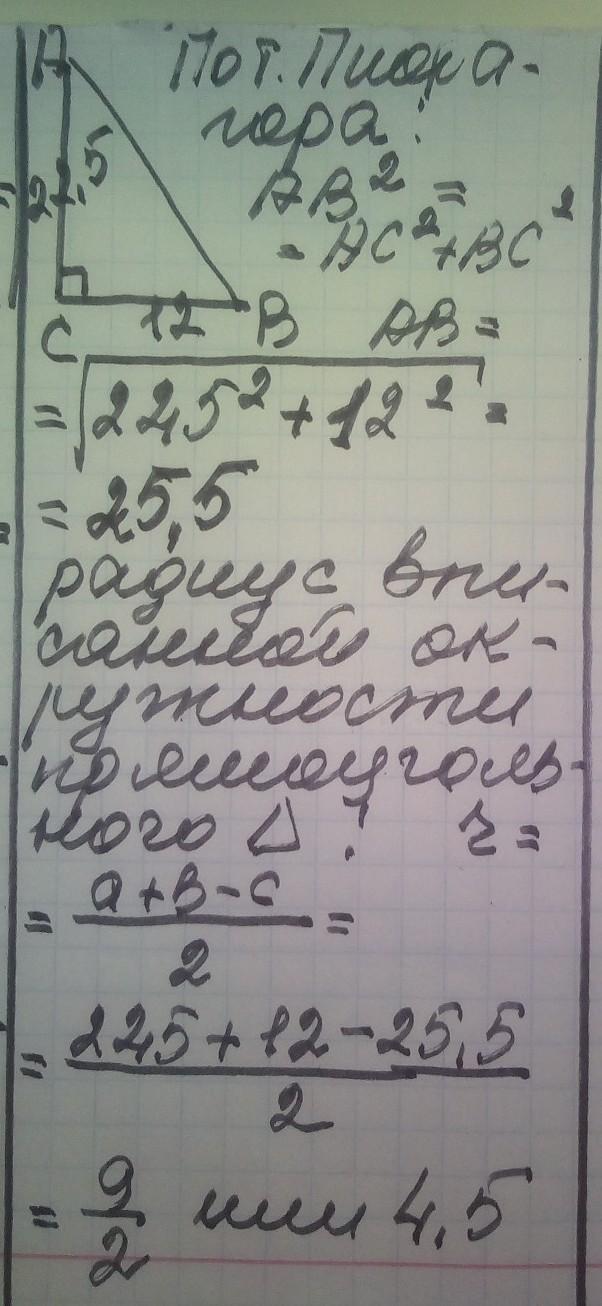 A
По т. Пифа-
гора:
22,5
AB² =
= AC² + BC²
C 12 B AB =
= √22,5² + 12² =
= 25,5
радиус впи-
санной ок-
ружности
прямоуголь-
ного Δ: r =
= a + b - c / 2 =
= 22,5 + 12 - 25,5 / 2
= 9/2 или 4,5